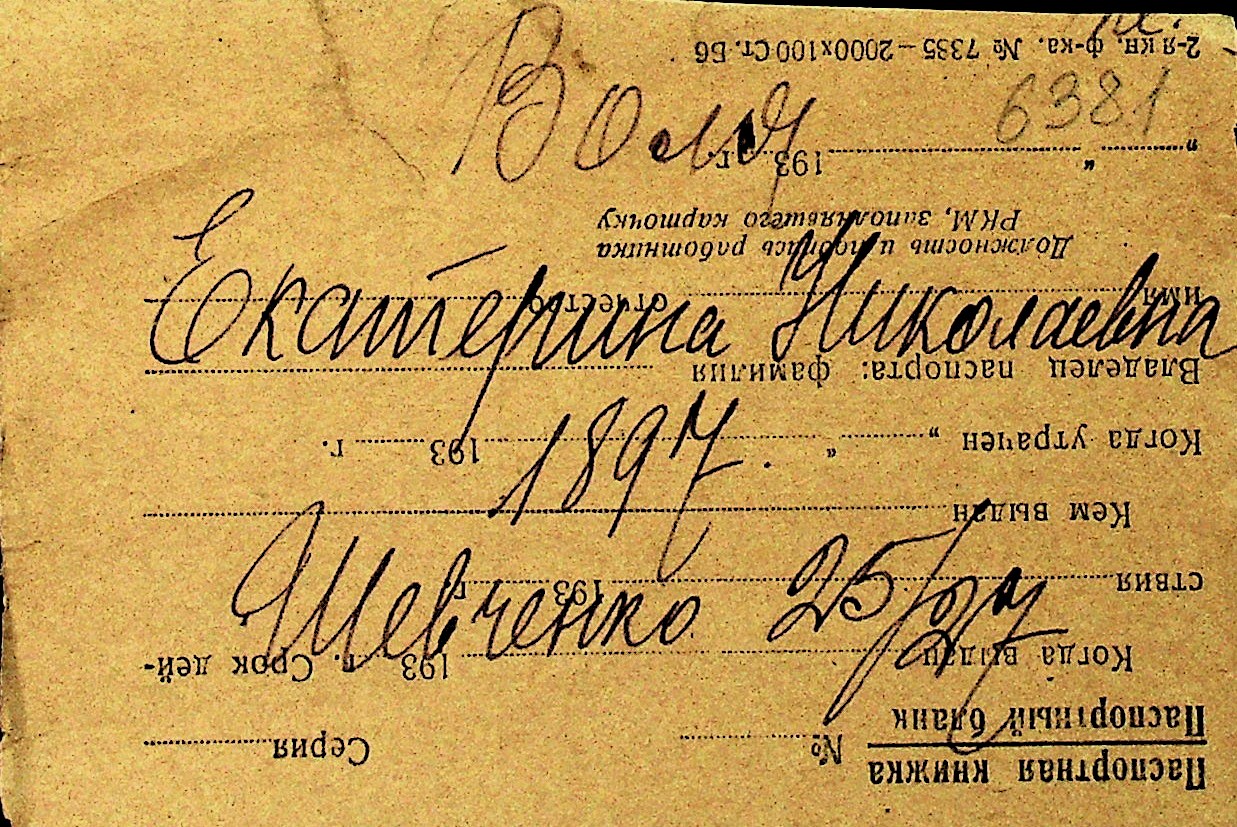 6381
Воля
Екатерина Николаевна
1897.
Шевченко
Паспортная книжка
Паспортный бланк
№ Серия
Когда выдан 193 г. Срок дей-
ствия 193 г.
Кем выдан
Когда утрачен „ “ 193 г.
Владелец паспорта: фамилия
имя отчество
Должность и подпись работника
РКМ, заполнявшего карточку
„ “ 193 г.
2-я кн. ф-ка. № 7335—2000х100 Ст. Б6